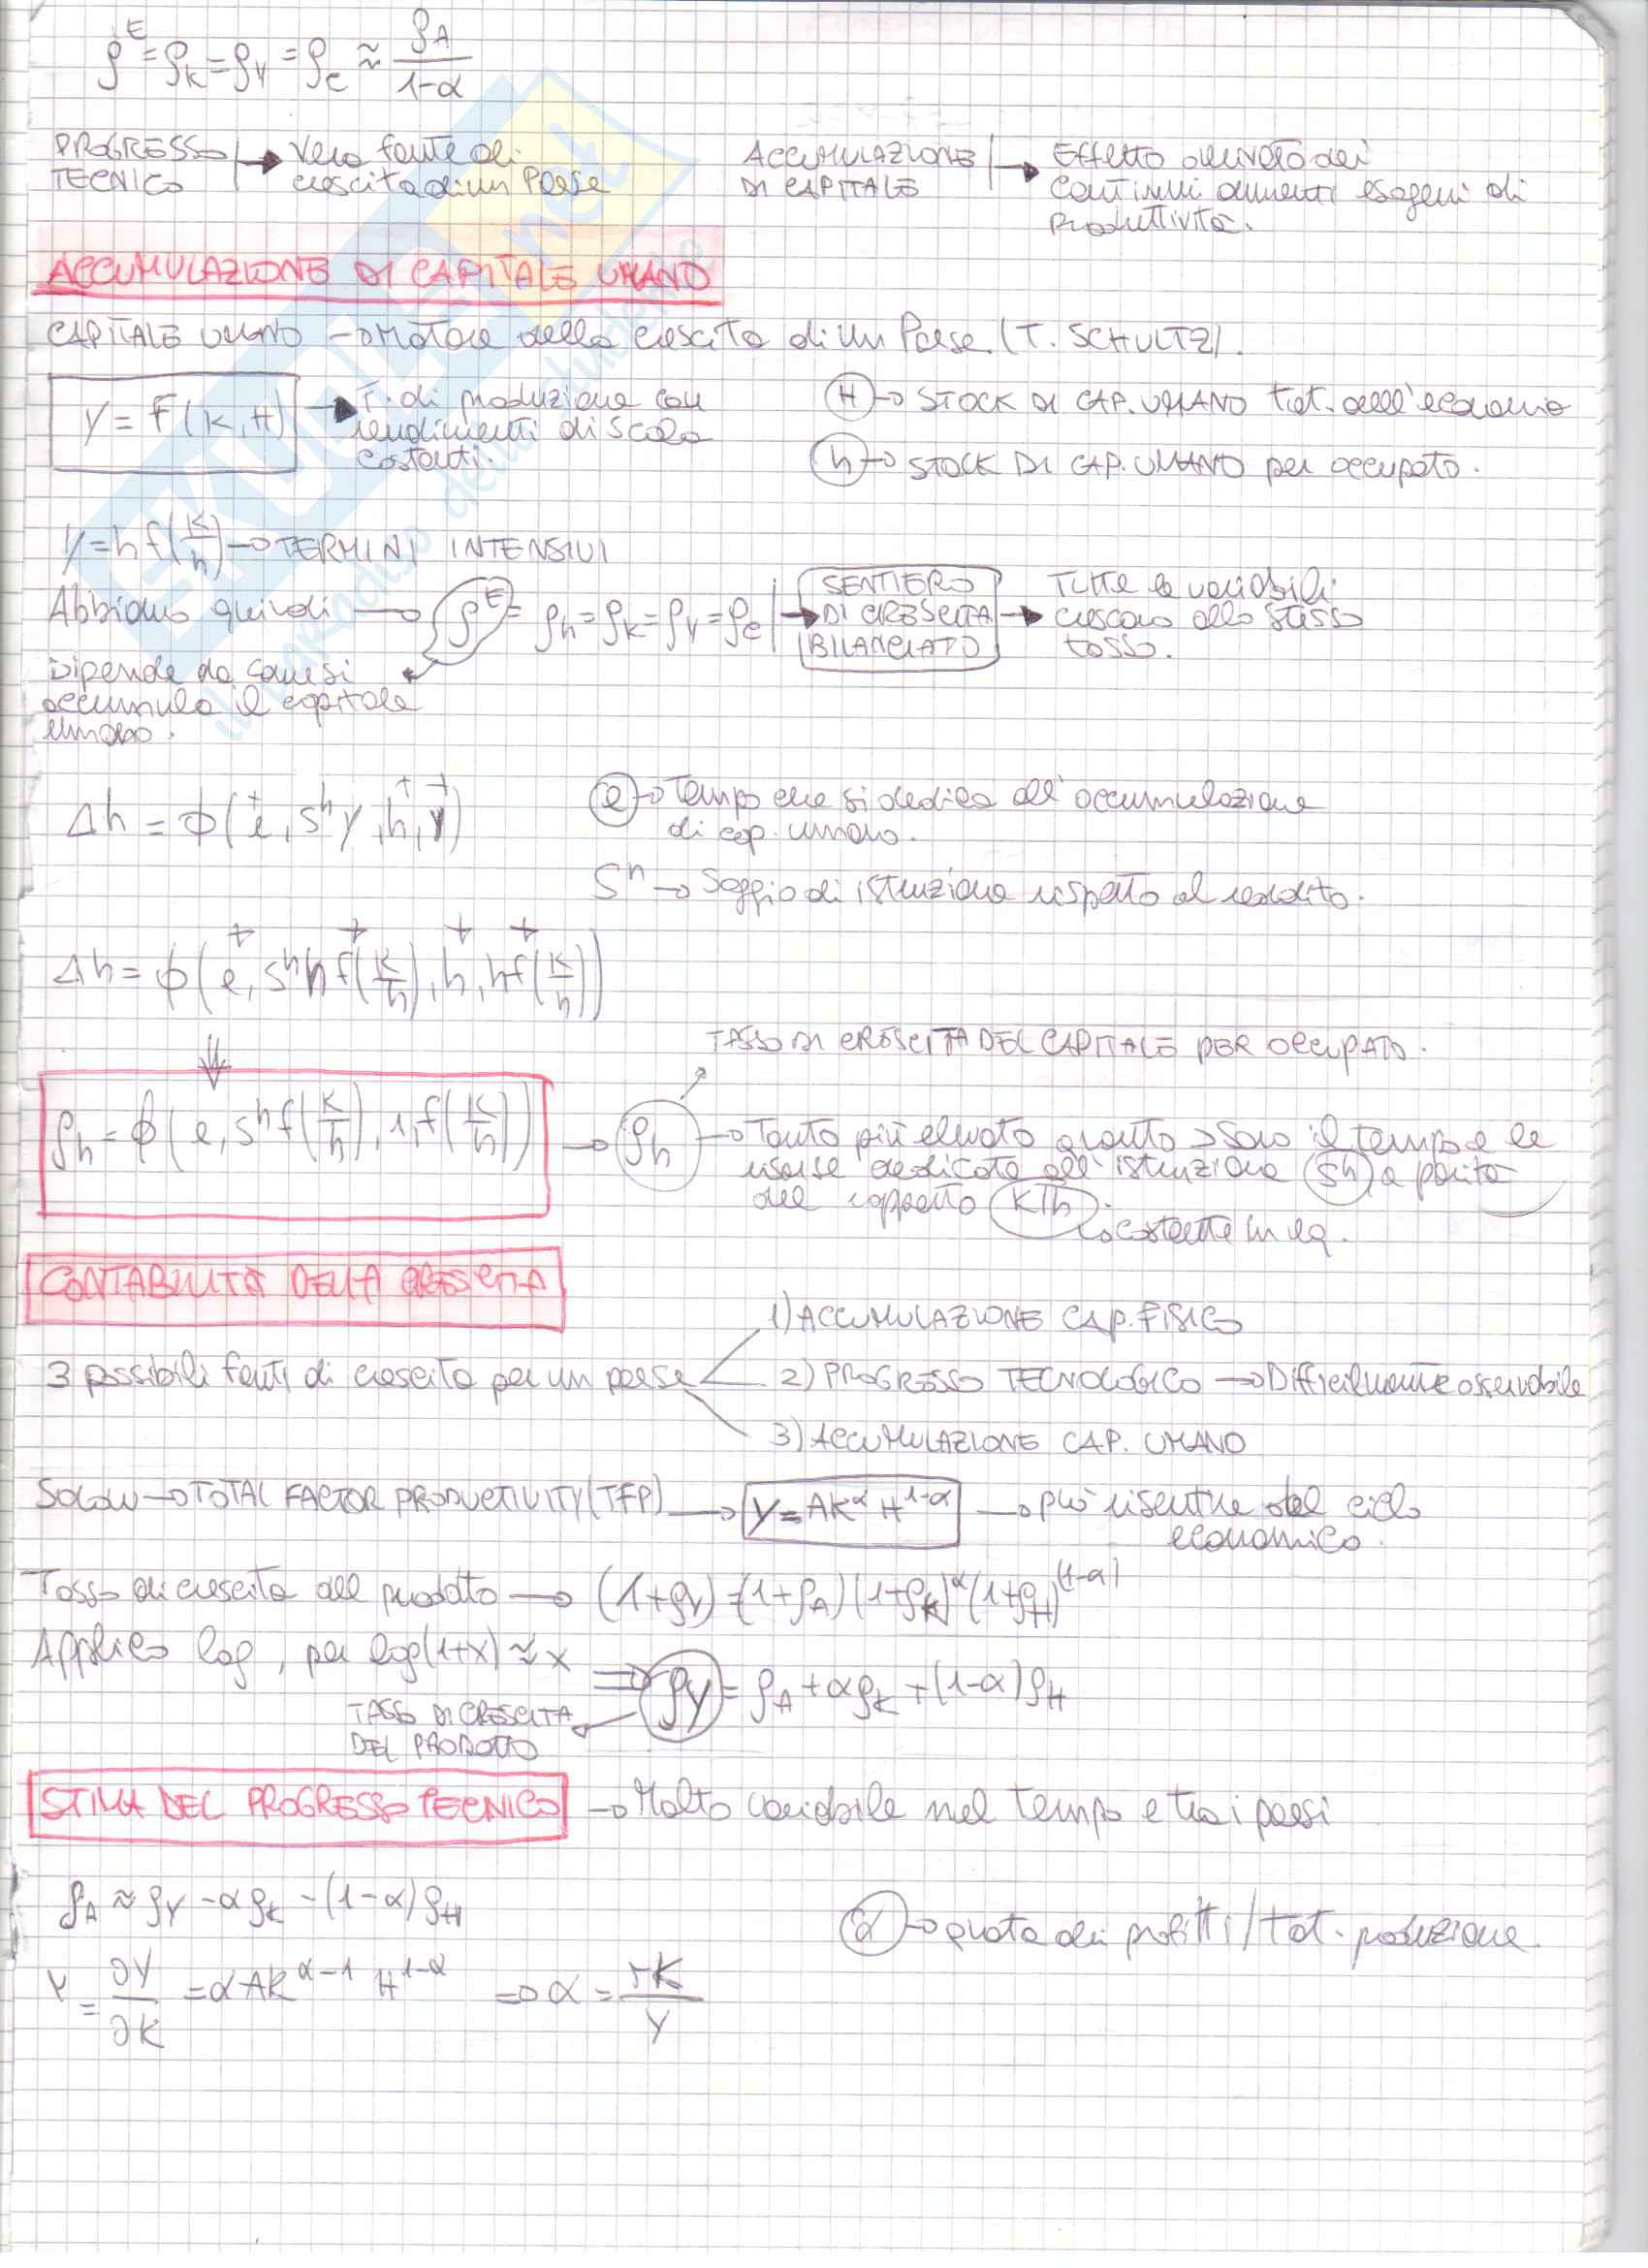 ρ^E = ρ_K = ρ_Y = ρ_C ≈ ρ_A / (1-α)
PROGRESSO TECNICO → Vera fonte di crescita di un Paese
ACCUMULAZIONE DI CAPITALE → Effetto derivato dei continui aumenti esogeni di produttività.
ACCUMULAZIONE DI CAPITALE UMANO
CAPITALE UMANO → Motore della crescita di un Paese. (T. SCHULTZ).
Y = F(K,H) → F. di produzione con rendimenti di scala costanti.
H → STOCK DI CAP. UMANO tot. dell'economia
h → STOCK DI CAP. UMANO per occupato.
y = h f(k/h) → TERMINI INTENSIVI
Abbiamo quindi → ρ^E = ρ_h = ρ_k = ρ_y = ρ_c → SENTIERO DI CRESCITA BILANCIATO → Tutte le variabili crescono allo stesso tasso.
Dipende da come si
accumula il capitale
umano.
Δh = φ(e, s^h y, h, y)
e → Tempo che si dedica all'accumulazione
di cap. umano.
S^h → Saggio di istruzione rispetto al reddito.
Δh = φ(e, s^h h f(k/h), h, h f(k/h))
TASSO DI CRESCITA DEL CAPITALE PER OCCUPATO.
ρ_h = φ(e, s^h f(k/h), 1, f(k/h)) → ρ_h → Tanto più elevato quanto > sono il tempo e le
risorse dedicate all'istruzione (s^h) a parità
del rapporto k/h.
→ costante in eq.
CONTABILITÀ DELLA CRESCITA
1) ACCUMULAZIONE CAP. FISICO
3 possibili fonti di crescita per un paese
2) PROGRESSO TECNOLOGICO → Difficilmente osservabile
3) ACCUMULAZIONE CAP. UMANO
SOLOW → TOTAL FACTOR PRODUCTIVITY (TFP) → Y = AK^α H^(1-α) → può risentire del ciclo
economico.
Tasso di crescita del prodotto → (1+ρ_Y) = (1+ρ_A)(1+ρ_K)^α (1+ρ_H)^(1-α)
Applico log, per log(1+x) ≈ x ⇒ ρ_Y = ρ_A + αρ_K + (1-α)ρ_H
TASSO DI CRESCITA
DEL PRODOTTO
STIMA DEL PROGRESSO TECNICO → Molto variabile nel tempo e tra i paesi
ρ_A ≈ ρ_Y - αρ_K - (1-α)ρ_H
α → quota dei profitti / tot. produzione.
r = ∂Y/∂K = αAK^(α-1) H^(1-α) ⇒ α = rK/Y